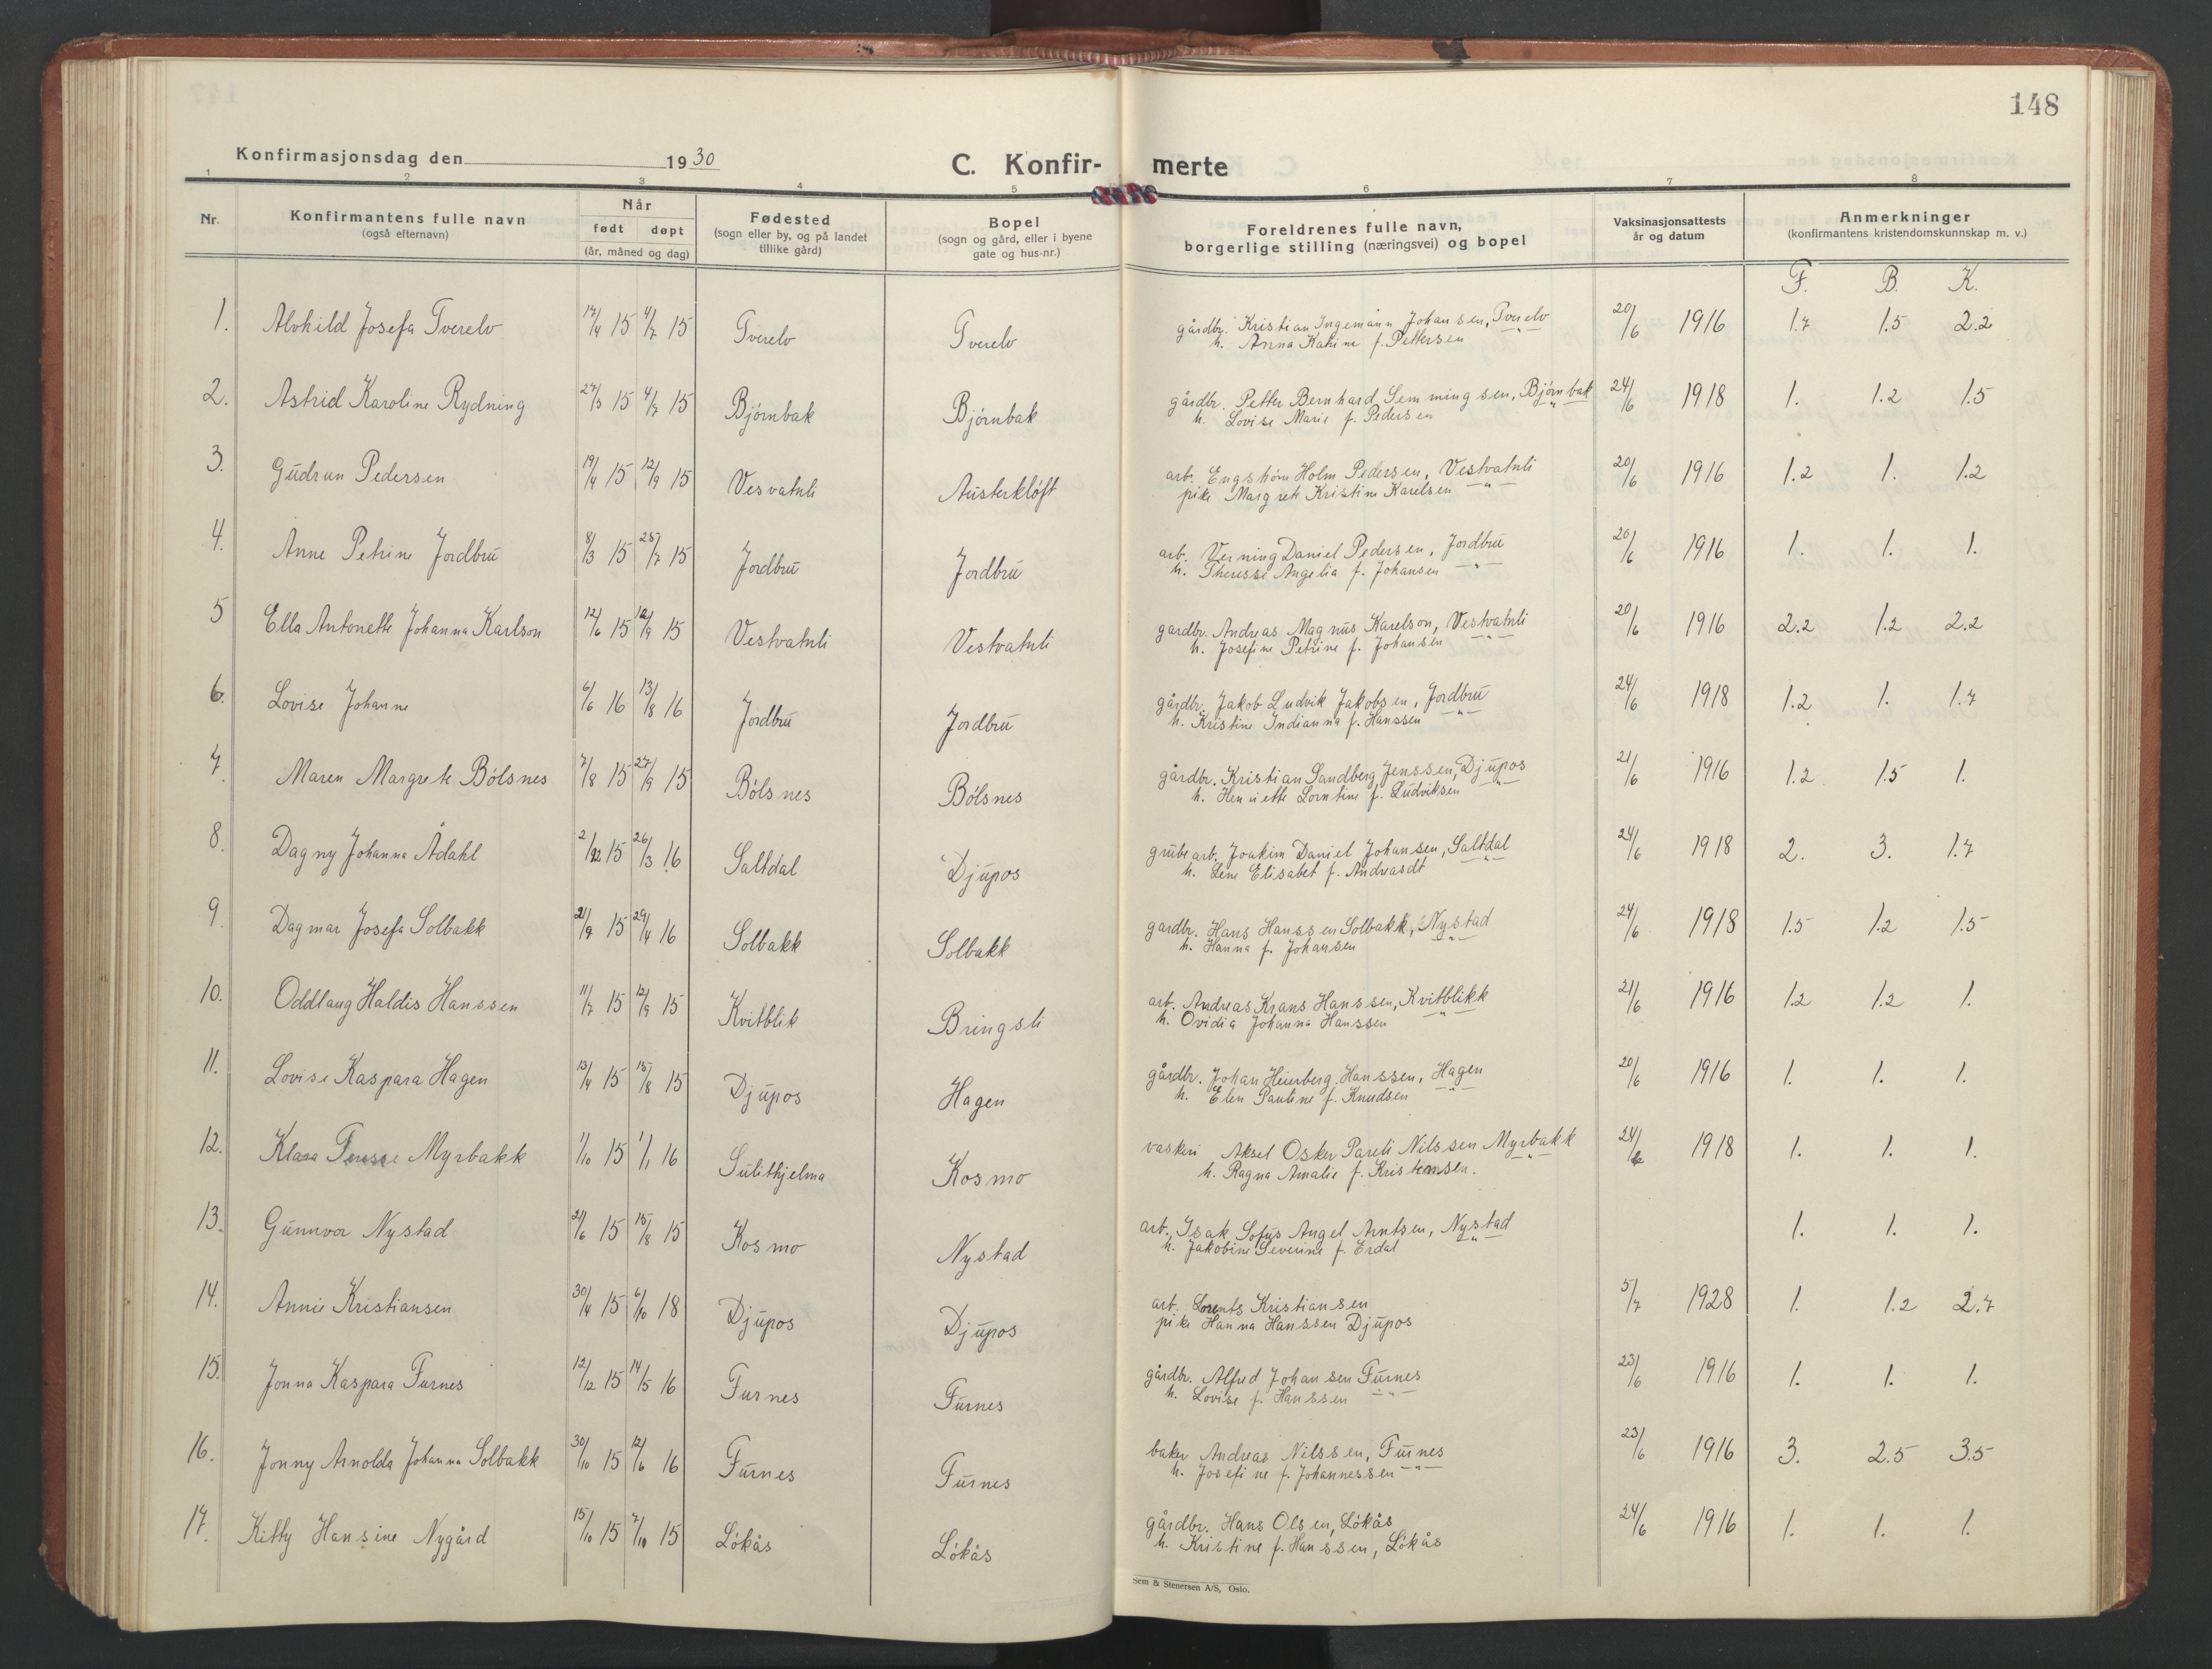 148
Konfirmasjonsdag den 1930
C. Konfir- merte
1 2 3 4 5 6 7 8
Nr. Konfirmantens fulle navn (også efternavn) Når født døpt (år, måned og dag) Fødested (sogn eller by, og på landet tillike gård) Bopel (sogn og gård, eller i byene gate og hus-nr.) Foreldrenes fulle navn, borgerlige stilling (næringsvei) og bopel Vaksinasjonsattests år og datum Anmerkninger (konfirmantens kristendomskunnskap m. v.)
F. B. K.
1. Alvhild Josefa Tverelv 17/4 15 4/7 15 Tverelv Tverelv gårdbr. Kristian Ingemann Johansen, Tverelv 20/6 1916 1.7 1.5 2.2
h. Anna Katrine f. Pettersen "
2. Astrid Karoline Rydning 27/3 15 4/7 15 Bjørnbak Bjørnbak gårdbr. Petter Bernhard Semmingsen, Bjørnbak 24/6 1918 1. 1.2 1.5
h. Lovise Marie f. Pedersen "
3. Gudrun Pedersen 19/4 15 12/9 15 Vesvatnli Austerkløft arb. Engstrøm Holm Pedersen, Vestvatnli 20/6 1916 1.2 1. 1.2
pike Margrete Kristine Karelsen "
4. Anne Petrine Jordbru 8/3 15 25/7 15 Jordbru Jordbru arb. Verning Daniel Pedersen, Jordbru 20/6 1916 1. 1. 1.
h. Theresse Angelia f. Johansen "
5 Ella Antonette Johanna Karlson 12/6 15 12/9 15 Vestvatnli Vestvatnli gardbr. Andreas Magnus Karelson, Vestvatnli 20/6 1916 2.2 1.2 2.2
h. Josefine Petrine f. Johansen "
6. Lovise Johanne 6/6 16 13/8 16 Jordbru Jordbru gårdbr. Jakob Ludvik Jakobsen, Jordbru 24/6 1918 1.2 1. 1.7
h. Kristine Indianna f. Hanssen "
7. Maren Margrete Bölsnes 7/8 15 27/9 15 Bölsnes Bölsnes gårdbr. Kristian Sandberg Jenssen, Djupos 21/6 1916 1.2 1.5 1.
h. Henriette Lorntine f. Ludviksen "
8. Dagny Johanna Ådahl 2/12 15 26/3 16 Saltdal Djupos grubearb. Joakim Daniel Johansen, Saltdal 24/6 1918 2. 3. 1.7
h. Lene Elisabet f. Andreasdt "
9. Dagmar Josefa Solbakk 21/9 15 29/4 16 Solbakk Solbakk gardbr. Hans Hanssen Solbakk, Nystad 24/6 1918 1.5 1.2 1.5
h. Hanna f. Johansen "
10. Oddlaug Haldis Hanssen 11/7 15 12/9 15 Kvitblik Bringsli arb. Andreas Krans Hanssen, Kvitblikk 21/6 1916 1.2 1.2 1.
h. Ovidia Johanna Hanssen "
11. Lovise Kaspara Hagen 13/4 15 15/8 15 Djupos Hagen gårdbr. Johan Heierberg Hanssen, Hagen 20/6 1916 1. 1. 1.
h. Elen Pauline f. Knudsen "
12. Klara Teresse Myrbakk 1/10 15 1/1 16 Sulithjelma Kosmo vaskeri Aksel Oskar Pareli Nilssen Myrbakk 24/6 1918 1. 1. 1.
h. Ragna Amalie f. Kristensen. "
13. Gunnvor Nystad 21/6 15 15/8 15 Kosmo Nystad arb. Isak Sofus Angel Arntsen, Nystad 1. 1. 1.
h. Jakobine Severine f. Erdal "
14. Annie Kristiansen 30/4 15 6/10 18 Djupos Djupos arb. Lorents Kristiansen 5/7 1928 1. 1.2 2.7
pike Hanna Hanssen Djupos
15. Jonna Kaspara Furnes 12/12 15 14/5 16 Furnes Furnes gårdbr. Alfred Johansen Furnes 23/6 1916 1. 1. 1.
h. Lovise f. Hanssen "
16. Jonny Arnolda Johanna Solbakk 30/10 15 12/6 16 Furnes Furnes baker Andreas Nilssen, Furnes 23/6 1916 3. 2.5 3.5
h. Josefine f. Johannessen "
17. Kitty Hansine Nygård 15/10 15 7/10 15 Lökås Lökås gårdbr. Hans Olsen, Lökås 24/6 1916 1. 1. 1.
h. Kristine f. Hanssen, Lökås
Sem & Stenersen A/S, Oslo.